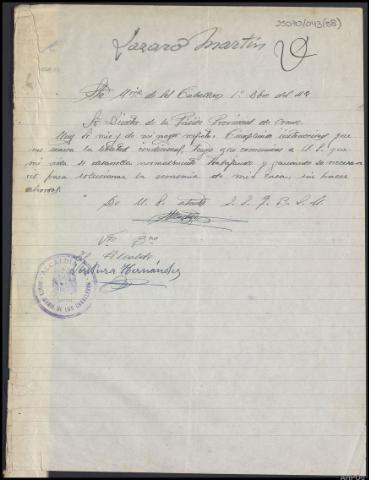 25090/043/58)
Lazaro Martín
Sta Mria de los Caballeros 1º Dbre del 42
Sr Director de la Prisión Provincial de
Muy Sr mio y de mi mayor respeto. Cumpliendo instrucciones que
me marca la libertad condicional, tengo que comunicar a U. S. que
mi vida se desarrolla normalmente trabajando y ganando lo necesa
rio para solucionar la economia de mi casa, sin hacer
ahorros.
De U. S. atento S. S. q. B. S. M.
Vto Bno
El Alcalde
Ventura Hernández
ALCALDIA
SANTA MARIA DE LOS CABALLEROS